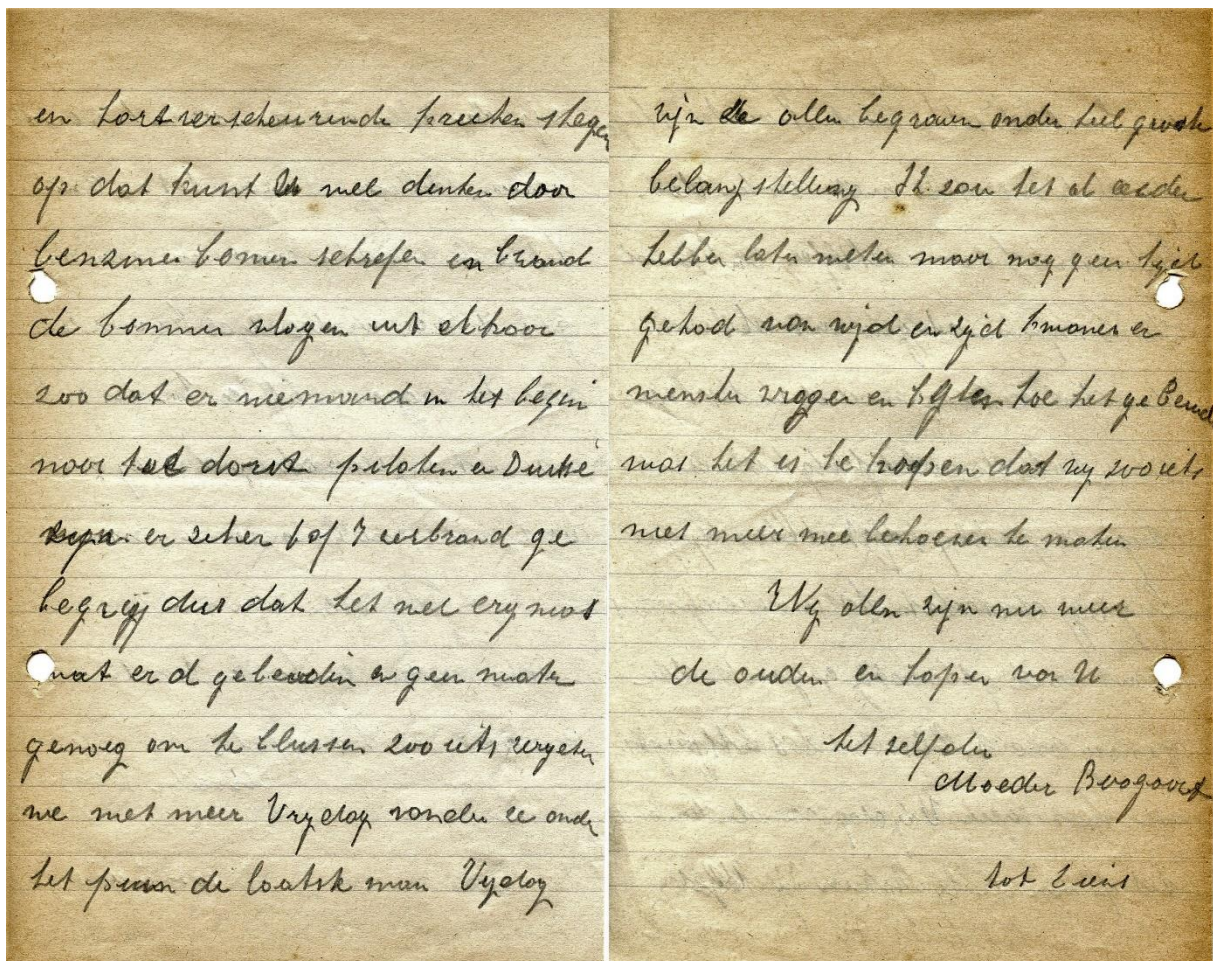 en hartverscheurende kreeten stegen
op dat kunt U wel denken door
benzine bomen schrefen en brand
de bommen vlogen uit elkaar
zoo dat er niemand in het begin
naar toe dorst piloten en Duitse
zijn er zeker 6 of 7 verbrand ge
begrijp dus dat het wel erg was
wat er d gebeurdin en geen water
genoeg om te blussen zoo iets vergeten
we niet meer Vrydag vonden ze onder
het puin de laatste man Vydag
zijn de allen begraven onder heel groote
belangstelling Ik zou het al eerder
hebben laten weten maar nog geen tijd
gehad van wijd en zijd kwamen er
mensen vragen en kijken hoe het gebeurd
was het is te hoopen dat wy zoo iets
niet meer mee behoeven te maken
Wy allen zijn nu weer
de ouden en hopen van U
het zelfden
Moeder Boogaart
tot ziens